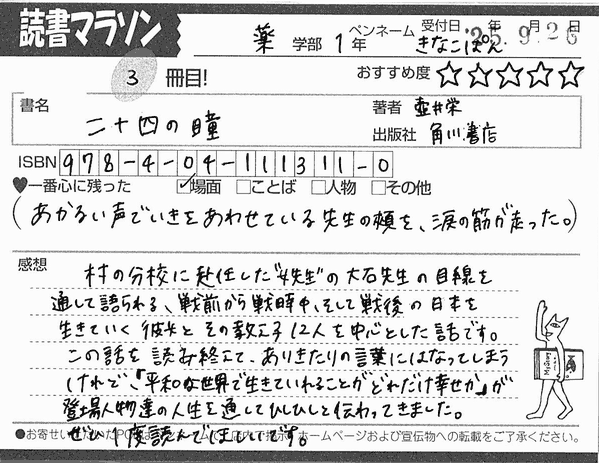 読書マラソン
薬 学部 1年 ペンネーム きなこぱん 受付日 '25年 9月 26日
3 冊目! おすすめ度 ☆☆☆☆☆
書名 二十四の瞳
著者 壺井栄
出版社 角川書店
ISBN 978-4-04-111311-0
♥一番心に残った ☑場面 □ことば □人物 □その他
(あかるい声でいきをあわせている先生の頬を、涙の筋が走った。)
感想
村の分校に赴任した"女先生"の大石先生の目線を
通して語られる、戦前から戦時中、そして戦後の日本を
生きていく彼女とその教え子12人を中心とした話です。
この話を読み終えて、ありきたりの言葉にはなってしまう
けれど、「平和な世界で生きていれることがどれだけ幸せか」が
登場人物達の人生を通してひしひしと伝わってきました。
ぜひ1度読んでほしいです。
●お寄せいただいたPOPは ホームページおよび宣伝物への転載をご了承ください。